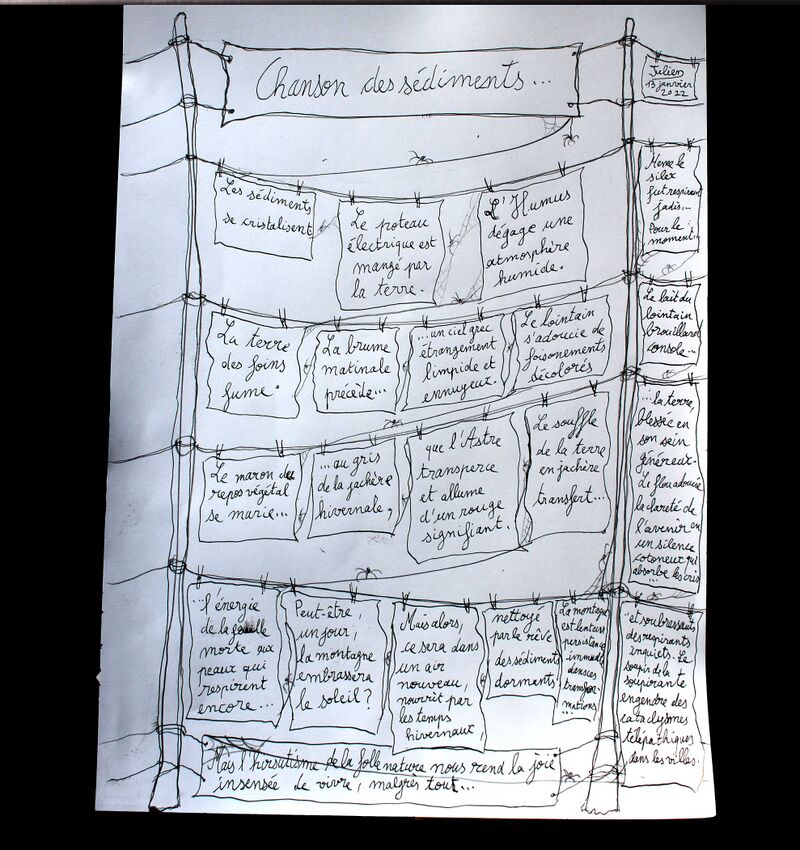 Chanson des sédiments...
Julien
13 janvier
2022
Les sédiments
se cristalisent
Le poteau
électrique est
mangé par
la terre.
L'Humus
dégage une
atmosphère
humide.
Même le
silex
fut respirant
jadis...
Pour le
moment...
La terre
des foins
fume.
La brume
matinale
précède...
...un ciel grec
étrangement
limpide et
ennuyeux.
Le lointain
s'adoucie de
foisonements
décolorés
Le lait du
lointain
brouillard
console...
Le maron du
repos végétal
se marie...
...au gris
de la jachère
hivernale,
que l'Astre
transperce
et allume
d'un rouge
signifiant.
Le souffle
de la terre
en jachère
transfert...
...la terre,
blessée en
son sein
généreux.
Le flou adoucie
la clareté de
l'avenir en
un silence
cotoneux qui
absorbe les cris
...
...l'énergie
de la feuille
morte aux
peaux qui
respirent
encore...
Peut-être,
un jour,
la montagne
embrassera
le soleil?
Mais alors,
ce sera dans
un air
nouveau,
nourrit par
les temps
hivernaux,
nettoyé
par le rêve
des sédiments
dormants.
La montagne
est lenteur
persistance
dans ces
transfor-
mations
...
...et soubressauts
des respirants
inquiets. Le
soupir de la
soupirante
engendre des
cataclysmes
télépathiques
dans les villes.
Mais l'hirsutisme de la folle nature nous rend la joie
insensée de vivre, malgrès tout...